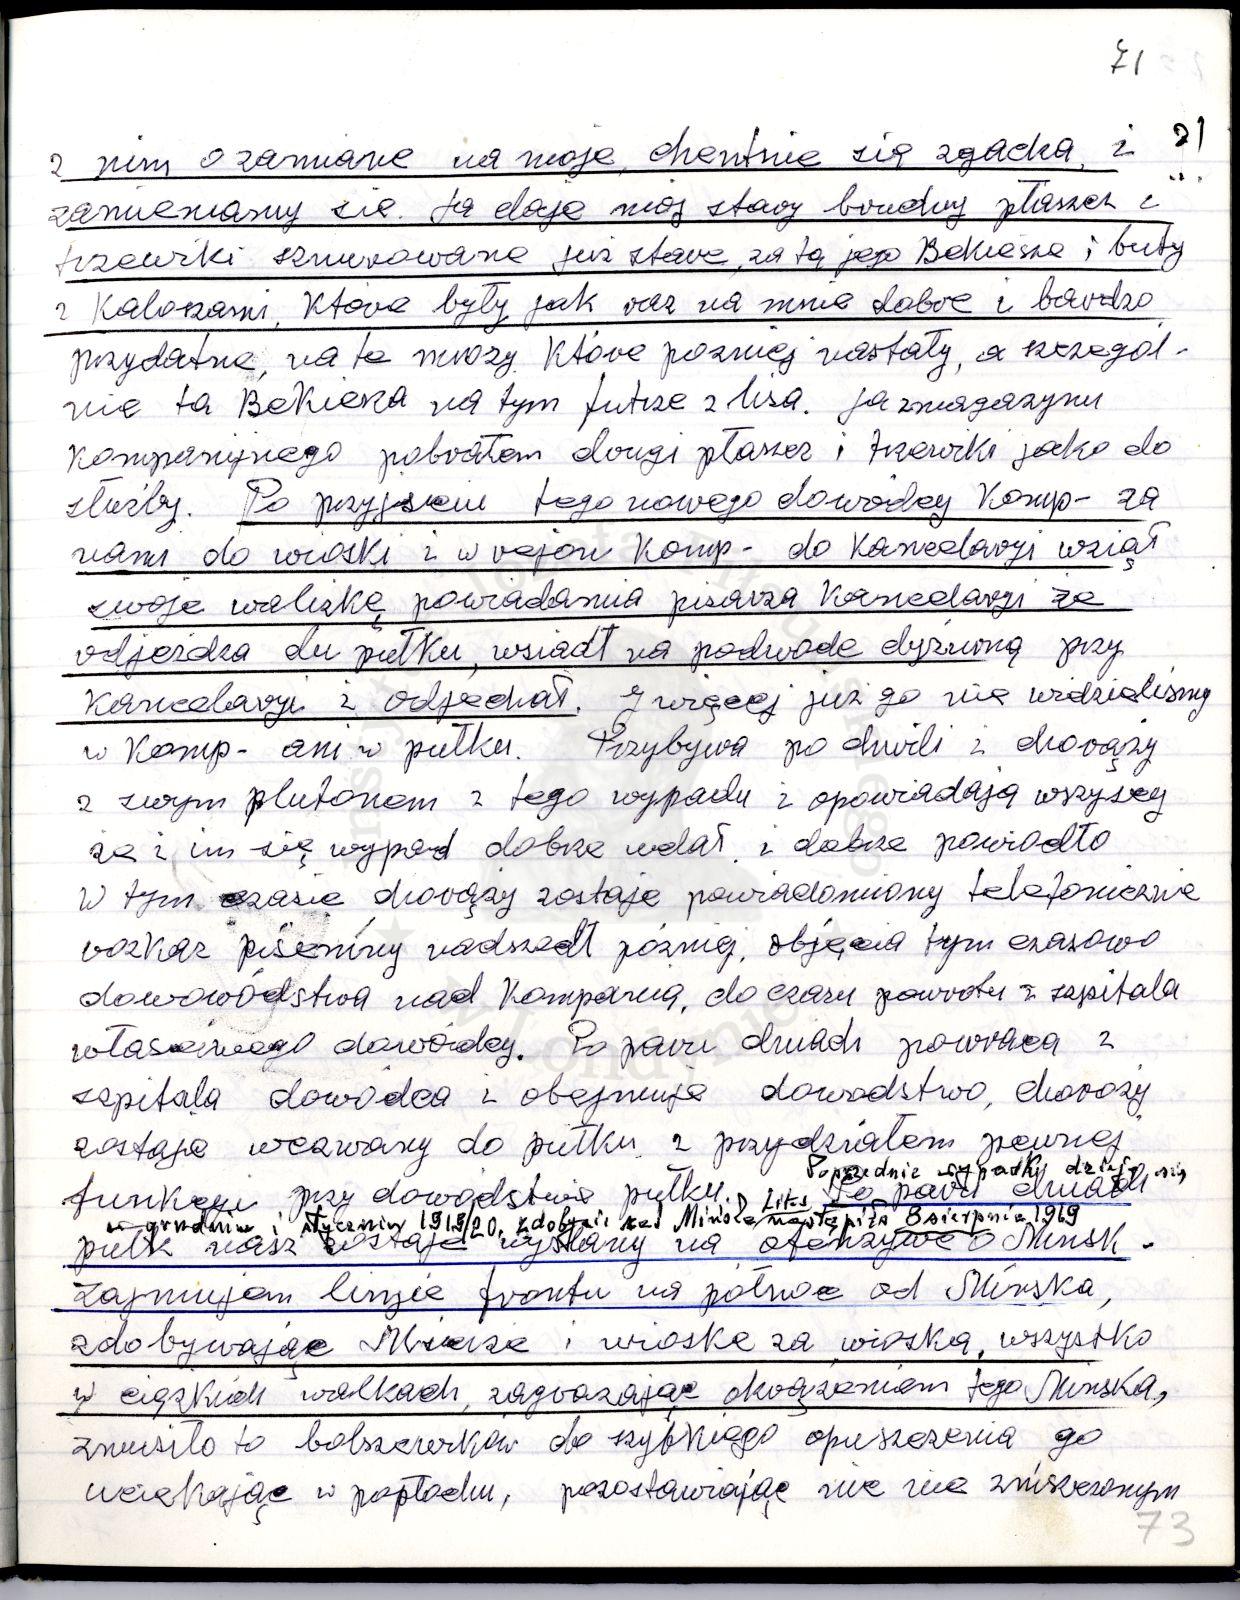 71
z nim o zamiane na moje, chentnie się zgadza, i
?!
zamieniamy sie. Ja daje mój stary brudny płaszcz i
trzewiki sznurowane już stare, za tą jego Bekiesze i buty
z Kaloszami, Które były jak raz na mnie dobre i bardzo
przydatne, na te mrozy Które pozniej nastały, a szczegól-
nie ta Bekiesza na tym futrze z lisa. Ja z magazynu
Kompanijnego pobrałem drugi płaszcz i trzewiki jako do
służby. Po przyjsciu tego nowego dowódcy Komp- za
nami do wioski i w rejon Komp- do Kancelaryi wziął
swoje walizkę powiadamia pisarza Kancelaryi że
odjeżdza du pułku, wsiadł na podwode dyżurną przy
Kancelaryi i odjechał. I więcej już go nie widzielismy
w Komp- ani w pułku. Przybywa po chwili i chorąży
z swym plutonem z tego wypadu i opowiadają wszyscy
że i im się wypad dobrze udał, i dobrze powiodło
W tym czasie chorąży zostaje powiadomiony telefonicznie
rozkaz piśemny nadszedł później, objęcia tym czasowo
dowowódstwa nad Kompanią, do czasu powrotu z szpitala
własciwego dowódcy. Po paru dniach powraca z
szpitala dowódca i obejmuje dowodstwo, choroży
zostaje wezwany do pułku z przydziałem pewnej
Poprzednie wypadki dzieją się
funkcyi przy dowództwie pułku. Po paru dniach
w grudniu i styczniu 1919/20, zdobycie zaś Mińska Lit. nastąpiło 8 sierpnia 1919
pułk nasz zostaje wysłany na ofenzywe o Minsk -
Zajmujem linije frontu na północ od Mińska,
zdobywając Mieysce i wioske za wioską, wszystko
w ciężkich walkach, zagrażając okrążeniem tego Minska,
zmusiło to bolszewików do szybkiego opuszczenia go
uciekając w popłochu, pozostawiając nic nie zniszczonym
73